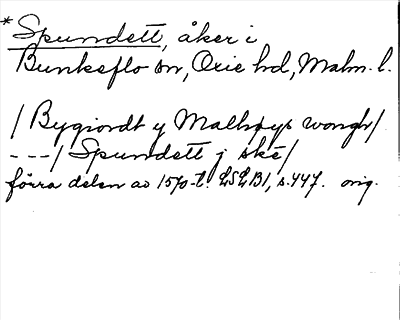 * Spundett, åker i
Bunkeflo sn, Oxie hd, Malm. l.
/ Bygiordt y Malhøys wongh/
---/ Spundett j ské/
förra delen av 1570-t. LSLB1, s. 447. orig.